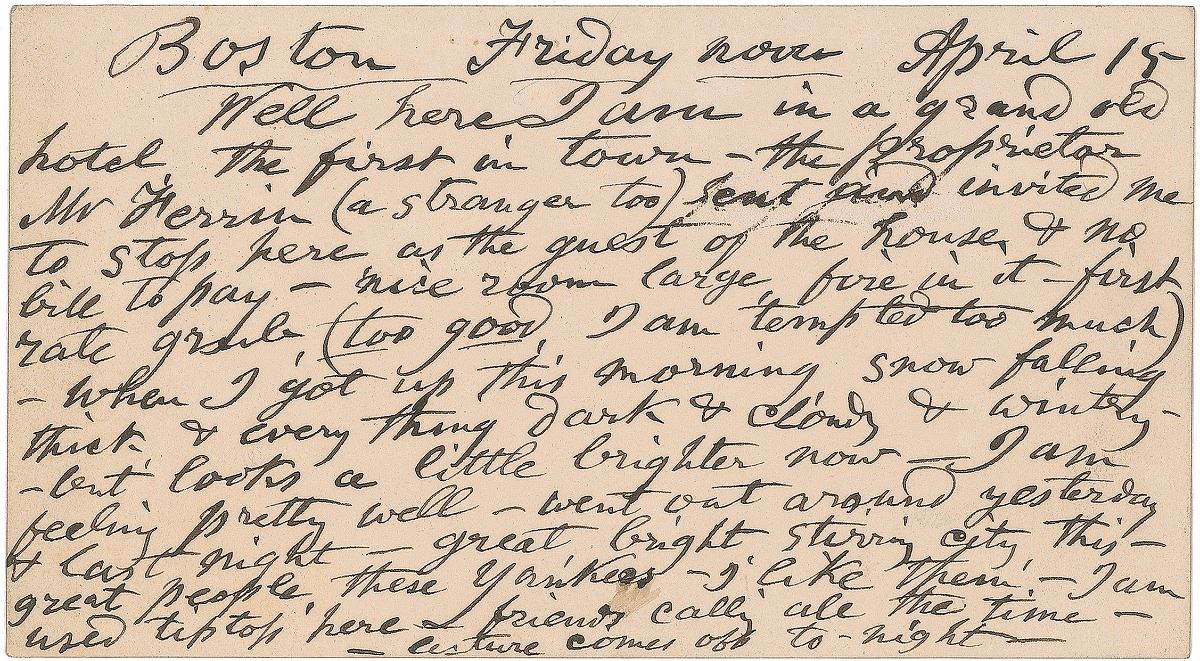 Boston Friday noon April 15
Well here I am in a grand old
hotel, the first in town – the proprietor
Mr Ferrin (a stranger too) sent and invited me
to stop here as the guest of the house, & no
bill to pay – nice room large, fire in it – first
rate grub, (too good, I am tempted too much)
– when I got up this morning snow falling
thick & every thing dark & cloudy & wintry –
– but looks a little brighter now – I am
feeling pretty well – went out around yesterday
& last night – great, bright, stirring city this –
great people, these Yankees – I like them – I am
used tip top here – friends calling all the time –
– lecture comes off to-night –